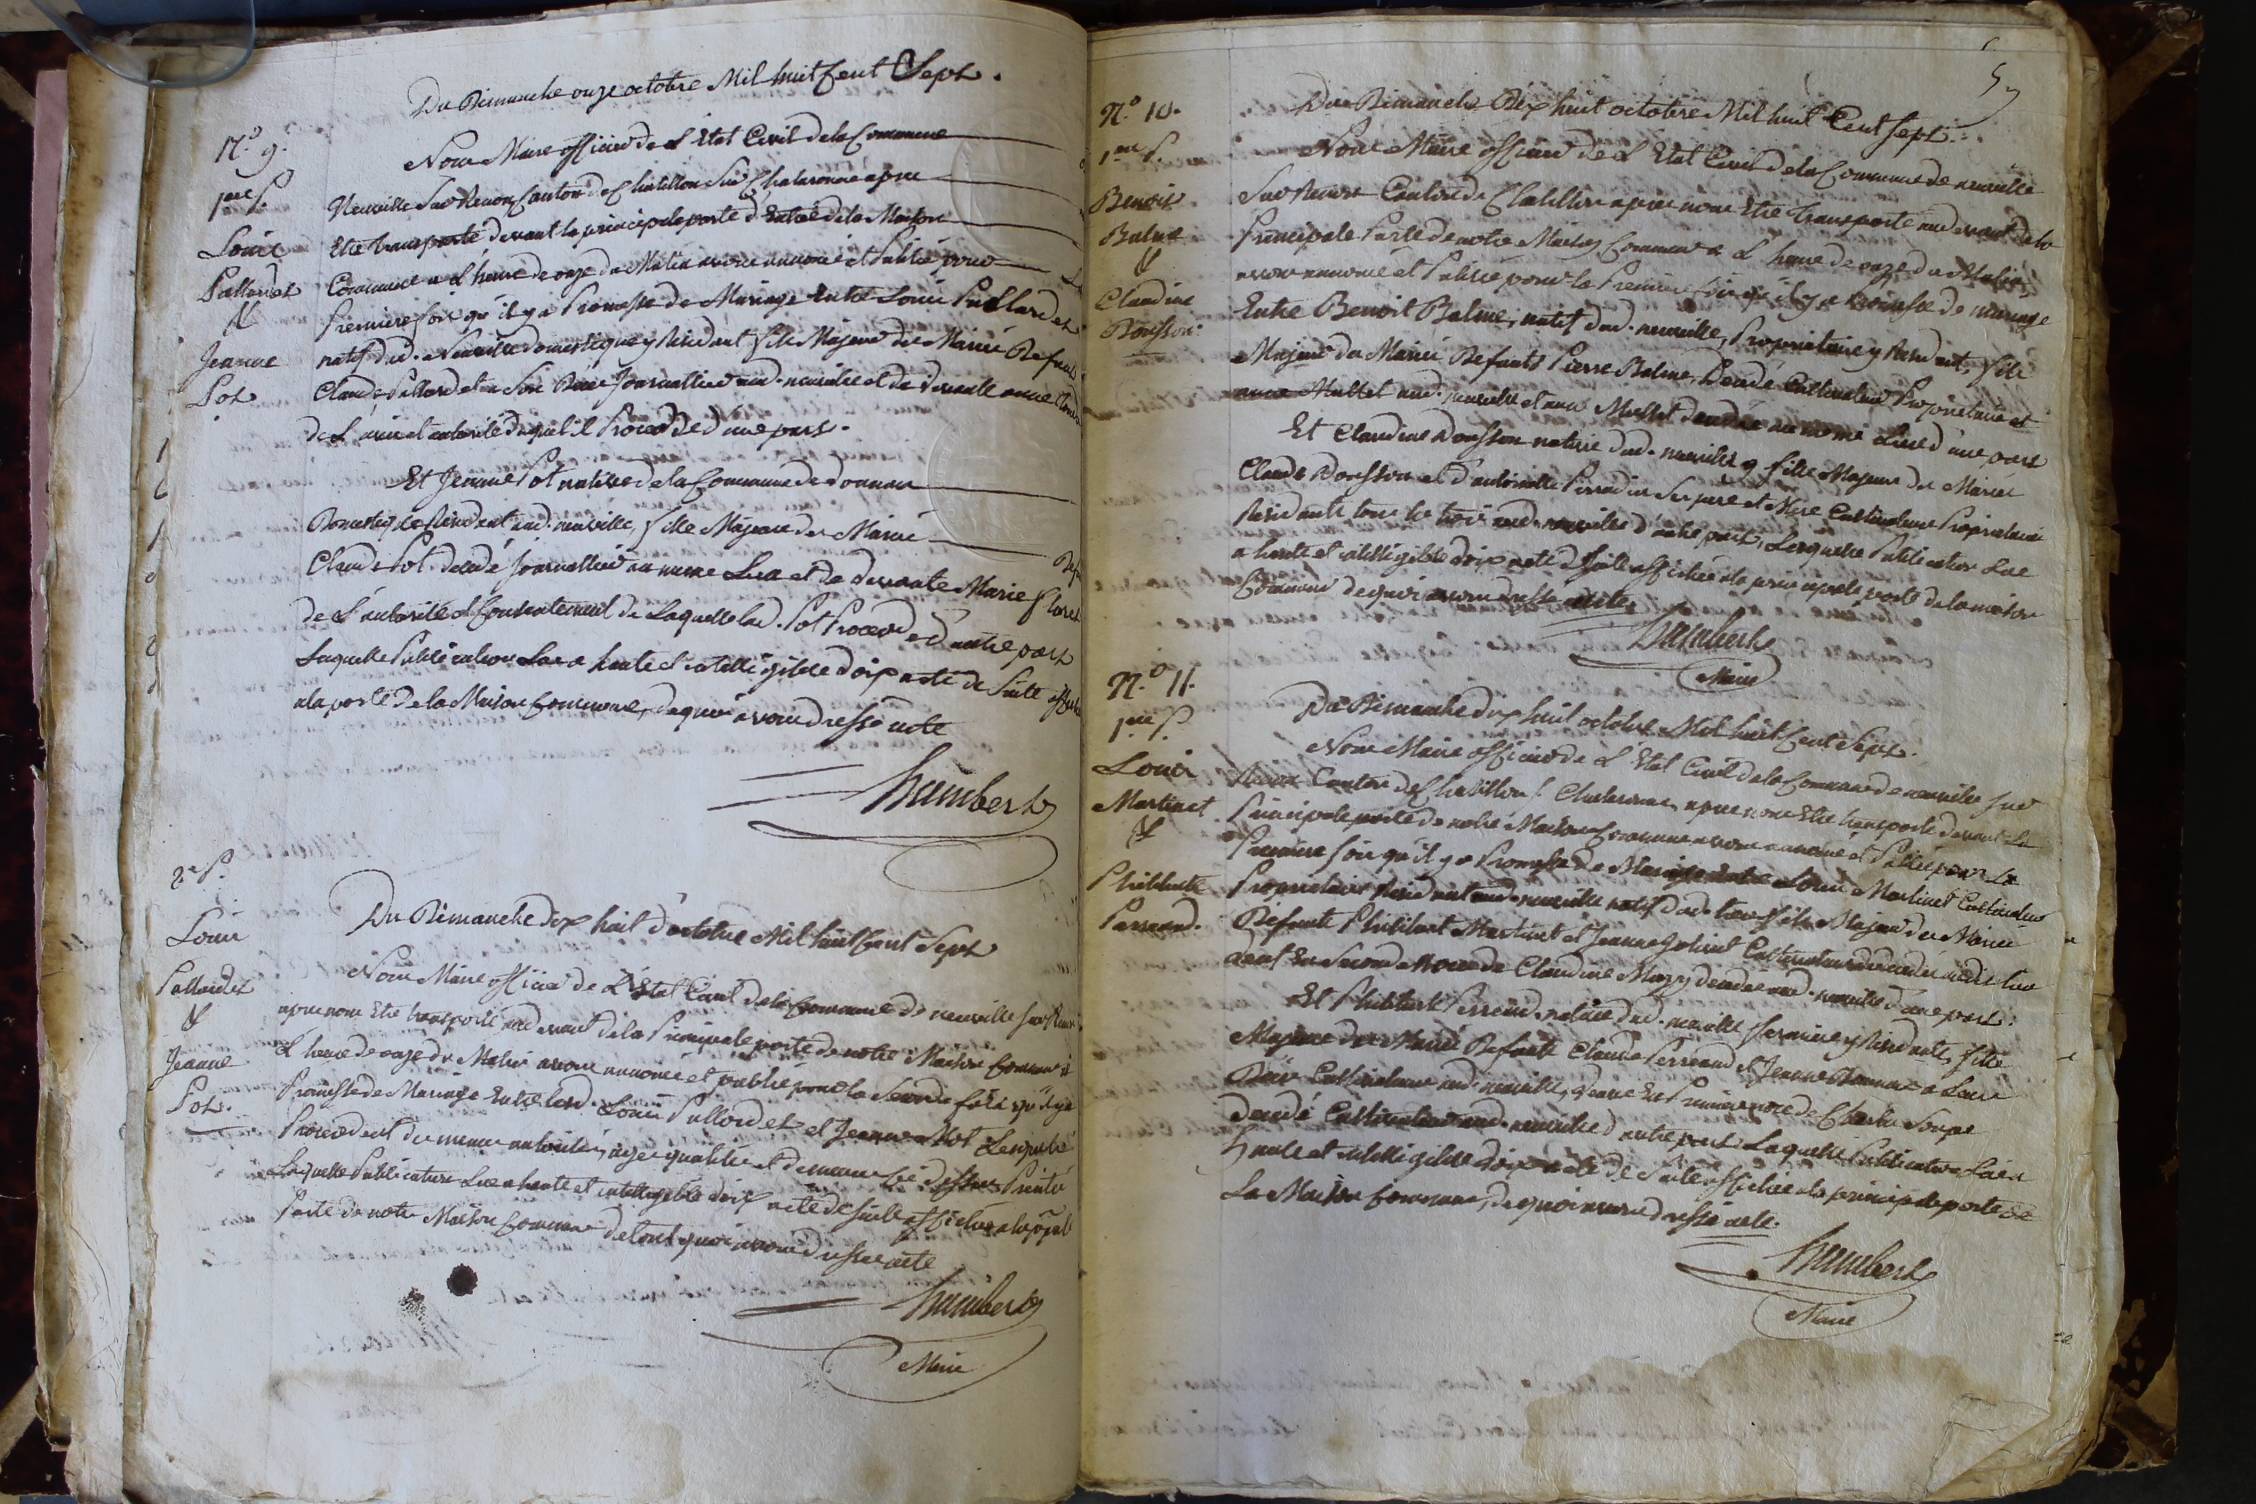 Du Dimanche onze octobre Mil huit Cent Sept.
N.o 9.
1.ere P.
Louis
Pallardet
&
Jeanne
Pot
Nous Maire officier de L'Etat Civil de la Commune
Neuville Sur Renon Canton de Chatillon Sur Chalaronne apres
Etre transporté devant la principale porte d'Entrée de la Maison
Commune a L'heure de onze du Matin avons annoncé et Publié pour
Premiere fois qu'il y a Promesse de Mariage Entre Louis Pallardet
natif dud. Neuville domestique y Résidant fils Majeur de Marié Defunt
Claude Pallardet a Son Décès Journallier aud. neuville et de Devuante
de L'avis et autorité duquel il Procede d'une part.
Et Jeanne Pot native de la Commune de
Domestique Résidant aud. neuville, fille Majeure de Marié
Claude Pot décédé Journallier au meme Lieu et de Vivante Marie
de L'autorité et Consentement de Laquelle lad. Pot Procede d'autre part
Laquelle Publication Lue a haute et intelligible Voix acté de Suite affichée
a la porte de la Maison Commune, de quoi avons dressé acte
Humbert
2.e P.
Louis
Pallardet
&
Jeanne
Pot.
Du Dimanche dix huit d'octobre Mil huit Cent Sept
Nous Maire officier de L'Etat Civil de la Commune de neuville Sur Renon
apres nous Etre transporté au devant de la Principale porte de notre Maison Commune a
L'heure de onze du Matin avons annoncé et publié pour la Seconde fois qu'il y a
Promesse de Mariage Entre led. Louis Pallardet et Jeanne Pot Lesquels
Procedent de meme autorité, age qualité et demeure Ci dessus
Laquelle Publication Lue a haute et intelligible Voix acté de Suite affichée a la p.pale
Porte de notre Maison Commune de tout quoi avons dressé acte
Humbert
Maire
N.o 10.
1.ere P.
Benoit
Balme
&
Claudine
Bonsson
Du Dimanche Dix huit octobre Mil huit Cent Sept.
Nous Maire officier de L'Etat Civil de la Commune de neuville
Sur Renon Canton de Chatillon apres nous Etre transporté au devant de la
Principale Porte de notre Maison Commune a L'heure de onze du Matin,
avons annoncé et Publié pour la Premiere fois qu'il y a Promesse de mariage
Entre Benoit Balme, natif dud. neuville, Proprietaire y Residant, fils
Majeur de Marié Defunts Pierre Balme, Décédé Cultivateur Proprietaire et
aud. neuville et décédée au meme Lieu d'une part
Et Claudine Bonsson native dud. neuville, fille Majeure de Mariés
Claude Bonsson et d'antoinette Perradin Ses pere et Mere Cultivateurs Proprietaires
Residants tous les trois aud. neuville d'autre part, Lesquelle Publication Lue
a haute et intelligible Voix acté de Suite affichée a la principale porte de la maison
Commune de quoi avons dressé acte.
Humbert
Maire
N.o 11.
1.ere P.
Louis
Martinet
&
Philiberte
Perreaud.
Du Dimanche dix huit octobre Mil huit Cent Sept.
Nous Maire officier de L'Etat Civil de la Commune de neuville Sur
Renon Canton de Chatillon S. Chalaronne, apres nous Etre transporté devant la
Principale porte de notre Maison Commune avons annoncé et Publié pour La
Premiere fois qu'il y a Promesse de Mariage Entre Louis Martinet Cultivateur
Proprietaire Résidant aud. neuville natif dud. Lieu fils Majeur de Mariés
Défunts Philibert Martinet et Jeanne Cultivateurs décédés audit lieu
Veuf En Seconde Noces de Claudine Mazuy décédée aud. neuville d'une part:
Et Philiberte Perreaud native dud. neuville y Résidante, fille
Majeure de Mariés Défunts Claude Perreaud et Jeanne a Leurs
Décès Cultivateurs aud. neuville, Veuve En Premiere noce de Charles
Décédé Cultivateur aud. neuville d'autre part Laquelle Publication Lue a
haute et intelligible Voix acté de Suite affichée a la principale porte de
La Maison Commune, de quoi avons dressé acte.
Humbert
Maire